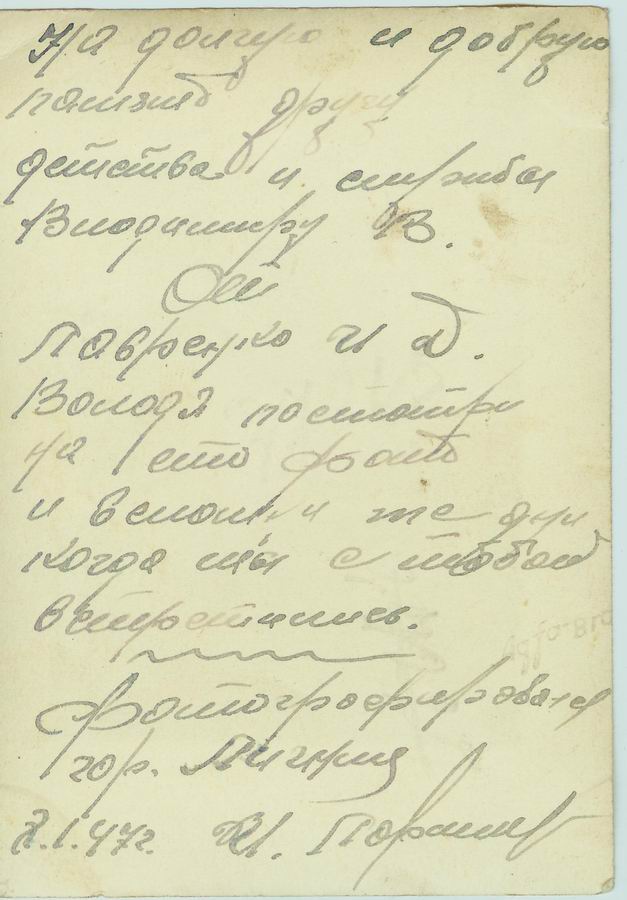 На долгую и добрую
память другу
детства и службы
Владимиру В.
От
Лавренко И Д.
Володя посмотри
на ето фото
и вспомни те дни
когда мы с тобой
встретились.
Фотографировался
гор. Лигниц
2.1.47г. И.